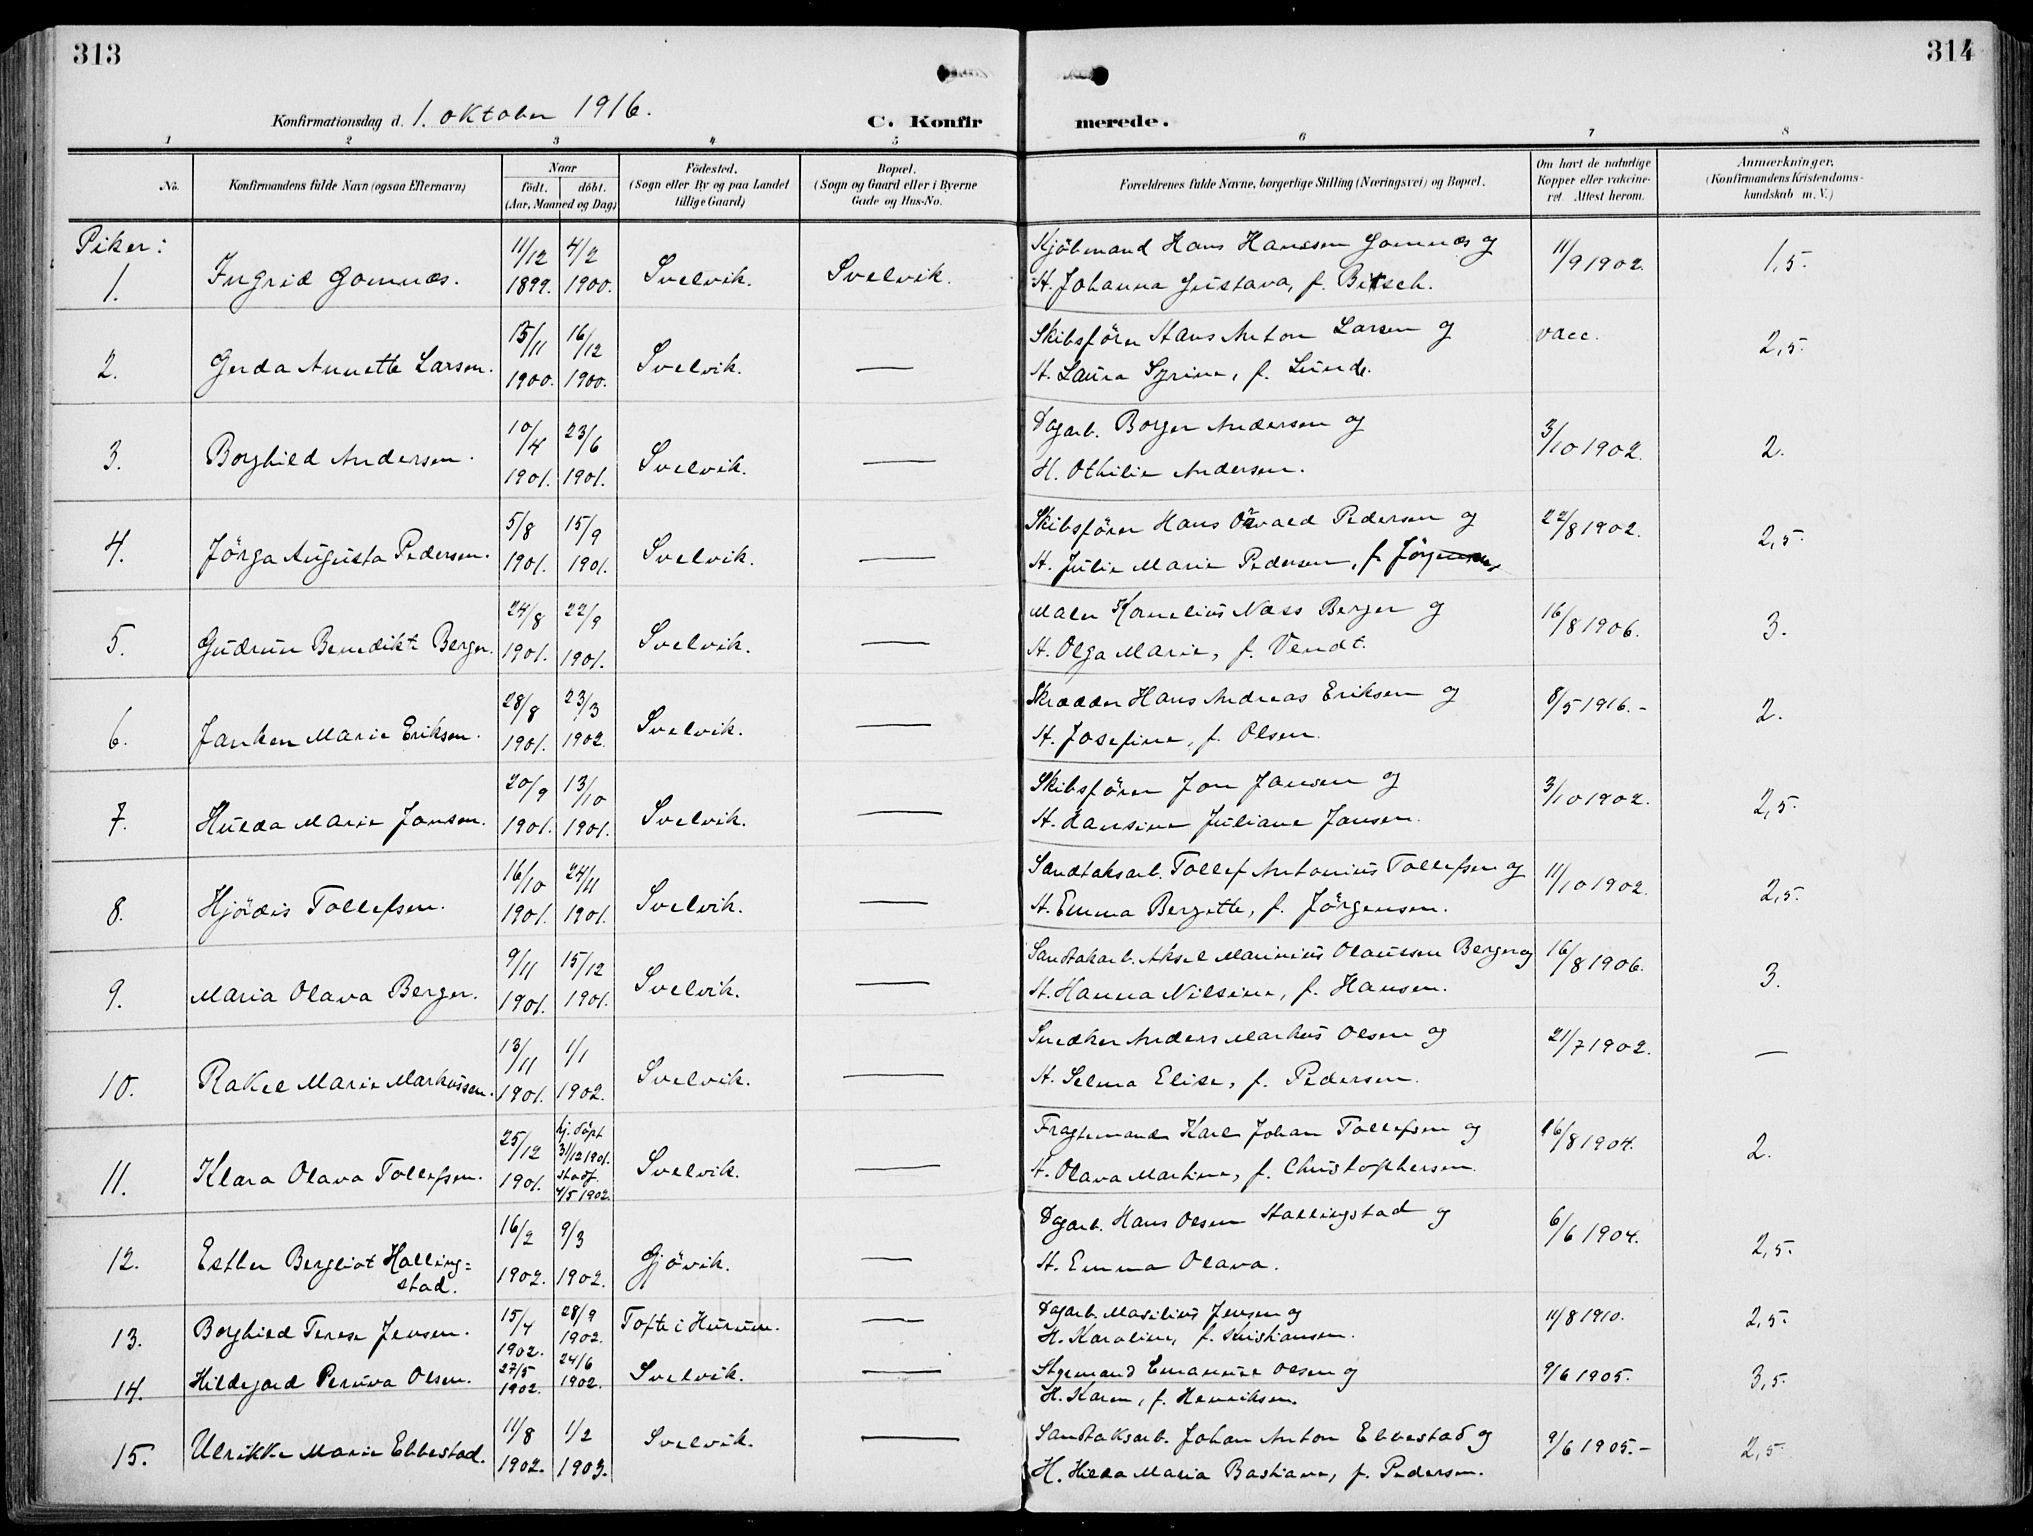 313
314
Konfirmationsdag d. 1. oktober 1916.
C. Konfirmerede.
1 2 3 4 5 6 7 8
No.
Konfirmandens fulde Navn (ogsaa Efternavn)
Naar
født. døbt.
(Aar, Maaned og Dag)
Fødested.
(Sogn eller By og paa Landet
tillige Gaard)
Bopæl.
(Sogn og Gaard eller i Byerne
Gade og Hus-No.
Forældrenes fulde Navne, borgerlige Stilling (Næringsvei) og Bopæl.
Om havt de naturlige
Kopper eller vakcine-
ret. Attest herom.
Anmærkninger.
(Konfirmandens Kristendoms-
kundskab m. V.)
Piker:
1. Ingrid Gomnæs. 11/12 1899. 4/2 1900. Svelvik. Svelvik.
Kjöbmand Hans Hansen Gomnæs og
H. Johanna Gustava, f. Bitsch. 11/9 1902. 1,5.
2. Gerda Annette Larsen. 15/11 1900. 16/12 1900. Svelvik. —
Skibsförer Hans Anton Larsen og
H. Laura Syrine, f. Lunde. vacc. 2,5.
3. Borghild Andersen. 10/4 1901. 23/6 1901. Svelvik. —
Dagarb. Borger Andersen og
H. Othilie Andersen. 3/10 1902. 2.
4. Jörga Augusta Pedersen. 5/8 1901. 15/9 1901. Svelvik. —
Skibsförer Hans Osvald Pedersen og
H. Julie Marie Pedersen, f. Jörgensen 22/8 1902. 2,5.
5. Gudrun Benedikte Berger. 24/8 1901. 22/9 1901. Svelvik. —
Maler Kornelius Næss Berger og
H. Olga Marie, f. Vendt. 16/8 1906. 3.
6. Janken Marie Eriksen. 28/8 1901. 23/3 1902. Svelvik. —
Skrædder Hans Andreas Eriksen og
H. Josefine, f. Olsen. 8/5 1916.- 2.
7. Hulda Marie Jansen. 20/9 1901. 13/10 1901. Svelvik. —
Skibsförer Jon Jansen og
H. Hansine Juliane Jansen. 3/10 1902. 2,5.
8. Hjördis Tollefsen. 16/10 1901. 24/11 1901. Svelvik. —
Sandtaksarb. Tollef Antonius Tollefsen og
H. Emma Bergitte, f. Jörgensen. 11/10 1902. 2,5.
9. Maria Olava Berger. 9/11 1901. 15/12 1901. Svelvik. —
Sandtakarb. Aksel Marinius Olaussen Berger og
H. Hanna Nilsine, f. Hansen. 16/8 1906. 3.
10. Rakel Marie Markussen. 13/11 1901. 1/1 1902. Svelvik. —
Snedker Anders Markus Olsen og
H. Selma Elise, f. Pedersen. 21/7 1902. —
11. Klara Olava Tollefsen. 25/12 1901. hj. döpt 31/12 1901. stadf. 4/5 1902. Svelvik. —
Fragtemand Karl Johan Tollefsen og
H. Olava Martine, f. Christophersen. 16/8 1904. 2.
12. Esther Bergliot Halling=
stad. 16/2 1902. 9/3 1902. Gjövik. —
Dagarb. Hans Olsen Hallingstad og
H. Emma Olava. 6/6 1904. 2,5.
13. Borghild Terese Jensen. 15/4 1902. 28/9 1902. Tofte i Hurum. —
Dagarb. Masilius Jensen og
H. Karoline, f. Kristiansen. 11/8 1910. 2,5.
14. Hildegard Petrina Olsen. 27/5 1902. 24/6 1902. Svelvik. —
Styrmand Emanuel Olsen og
H. Karen, f. Henriksen. 9/6 1905. 3,5.
15. Ulrikke Marie Ebbestad. 11/8 1902. 1/2 1903. Svelvik. —
Sandtaksarb. Johan Anton Ebbestad og
H. Hilda Maria Bastiane, f. Pedersen. 9/6 1905.- 2,5.